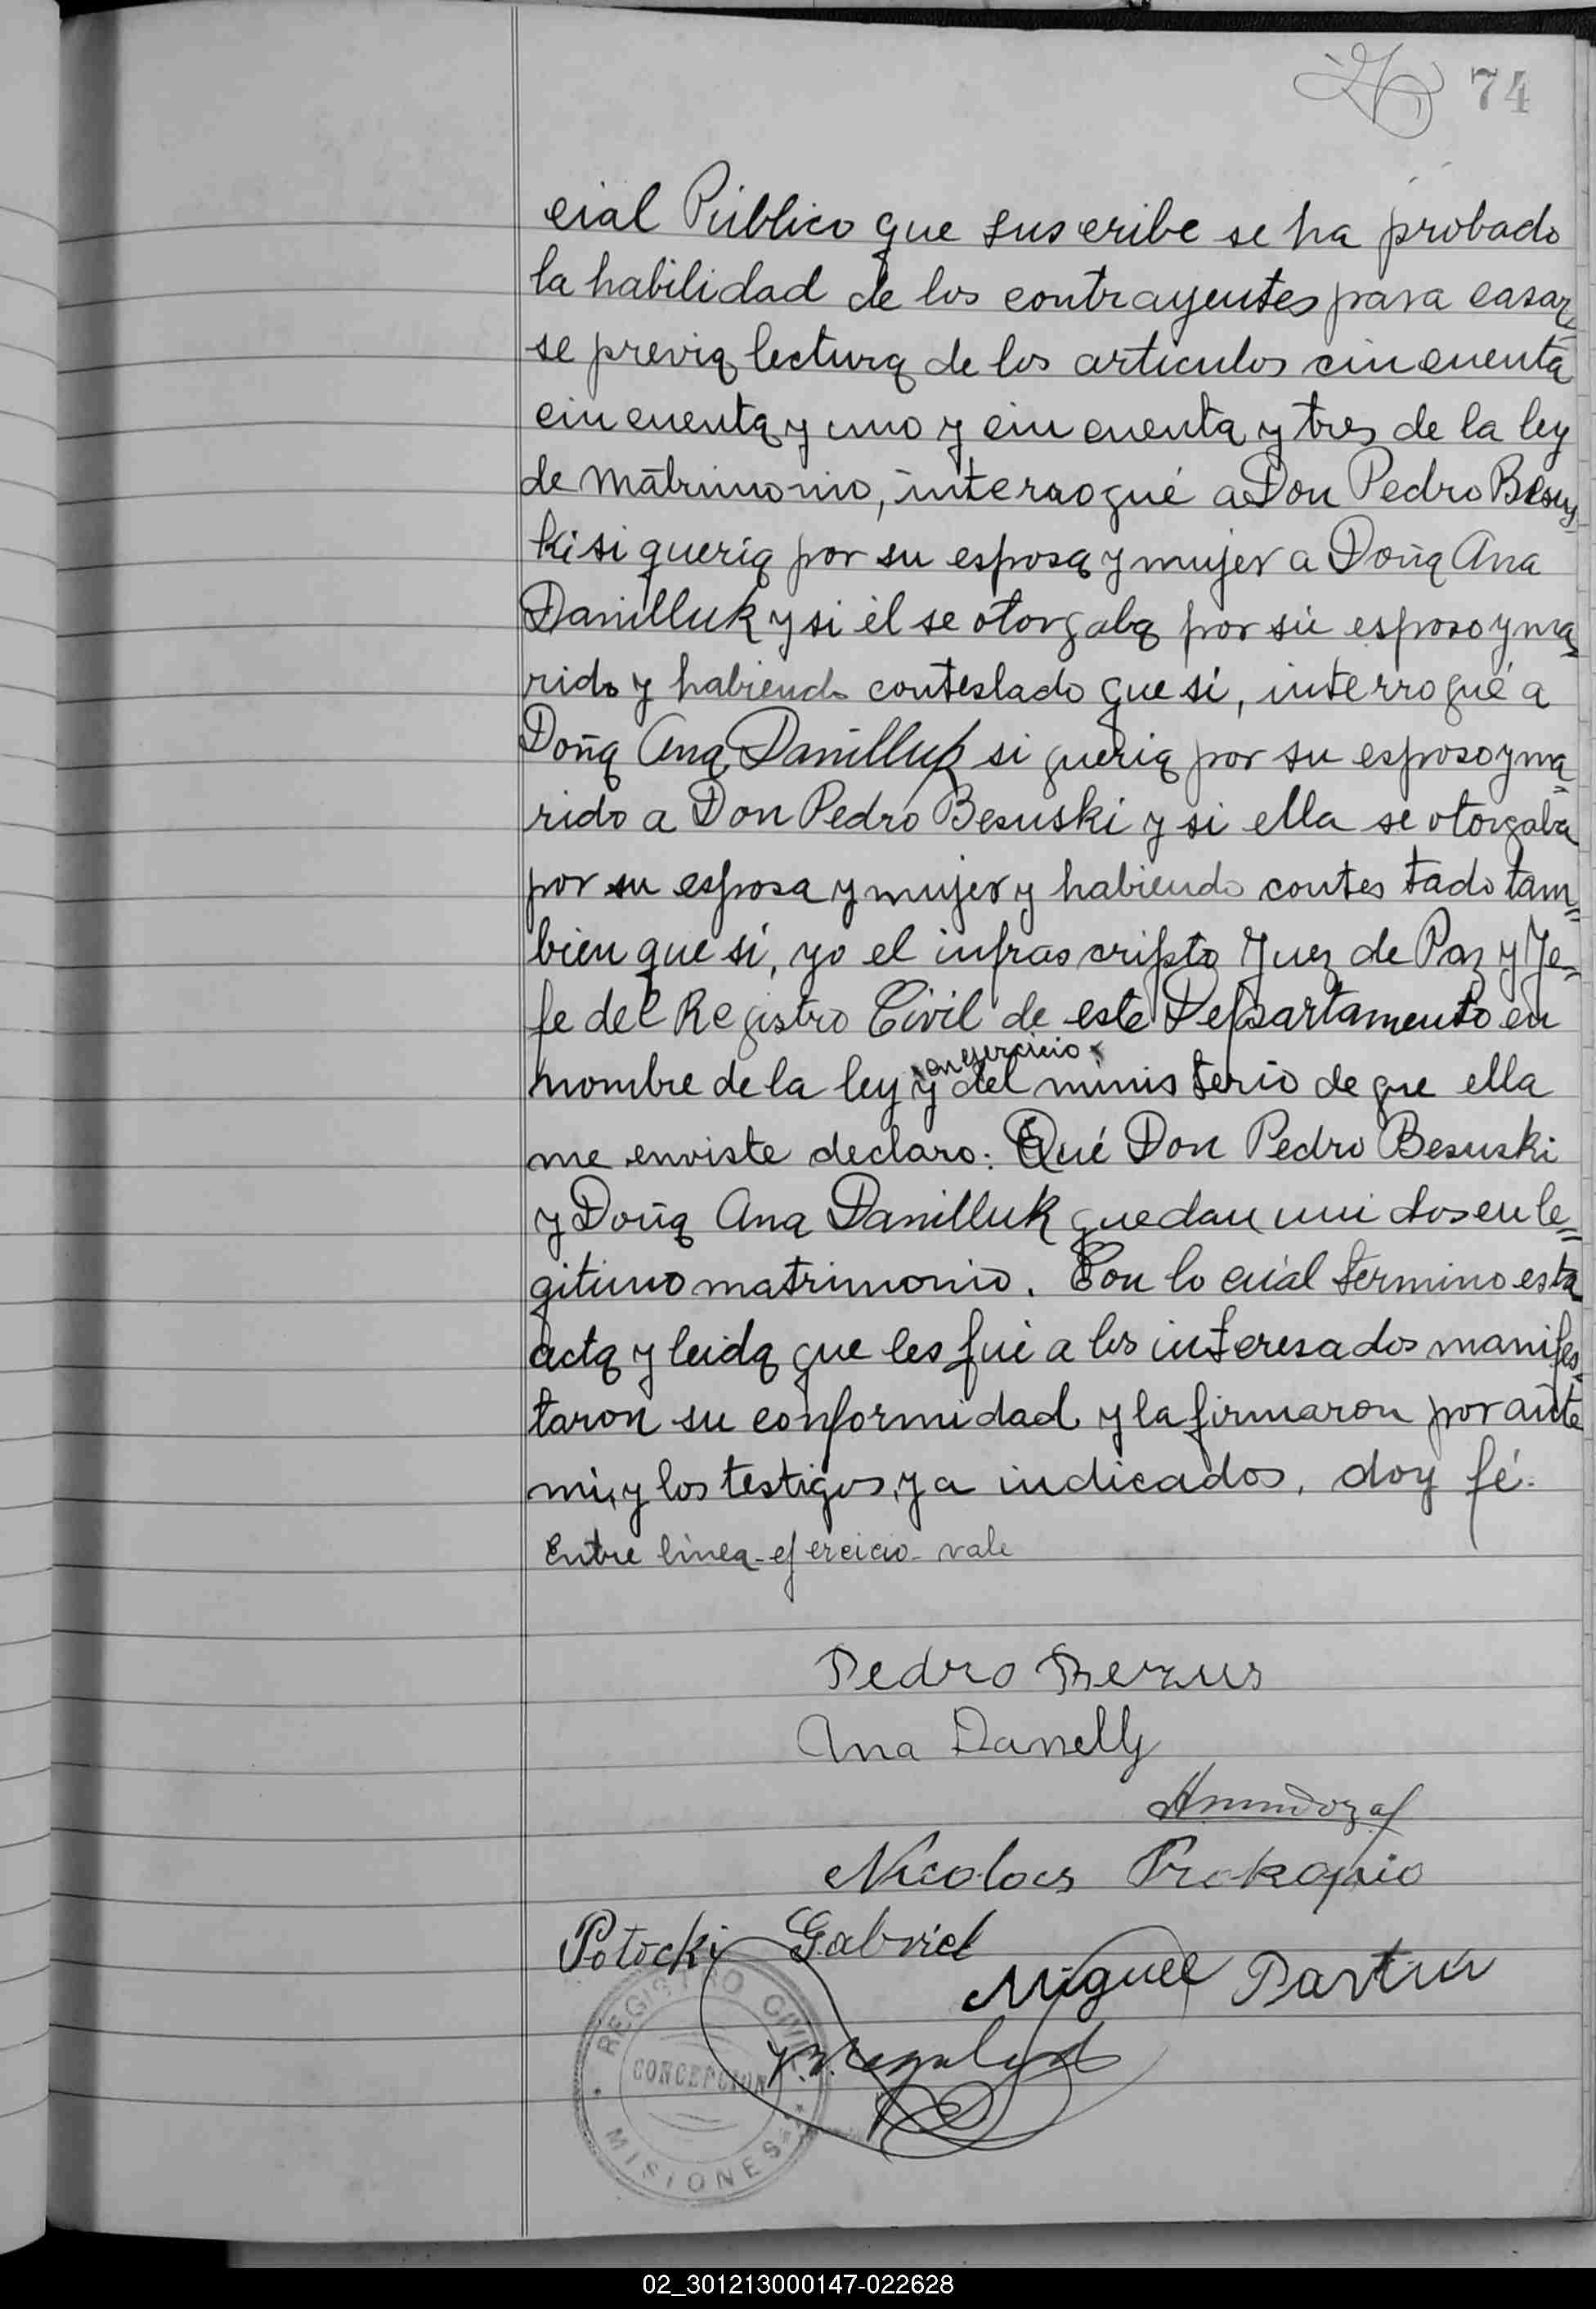 74
cial Público que suscribe se ha probado
la habilidad de los contrayentes para casar=
se previa lectura de los articulos cincuenta
cincuenta y uno y cincuenta y tres de la ley
de matrimonio, interrogué a Don Pedro Besus=
ki si queria por su esposa y mujer a Doña Ana
Danilluk y si él se otorgaba por su esposo y ma=
rido y habiendo contestado que si, interrogué a
Doña Ana Danilluk si queria por su esposo y ma=
rido a Don Pedro Besuski y si ella se otorgaba
por su esposa y mujer y habiendo contestado tam=
bien que sí, yo el infrascripto Juez de Paz y Je=
fe del Registro Civil de este Departamento en
en ejercicio
nombre de la ley y del ministerio de que ella
me enviste declaro: Qué Don Pedro Besuski
y Doña Ana Danilluk quedan unidos en le=
gitimo matrimonio. Con lo cuál termino esta
acta y leida que les fué a los interesados manifes=
taron su conformidad y la firmaron por ante
mi, y los testigos, ya indicados, doy fé.
Entre linea-ejercicio-vale
Pedro Bezus
Ana Danelly
Nicolas Prokopio
Potocki Gabriel
Miguel
REGISTRO CIVIL
CONCEPCION
MISIONES
02_301213000147-022628